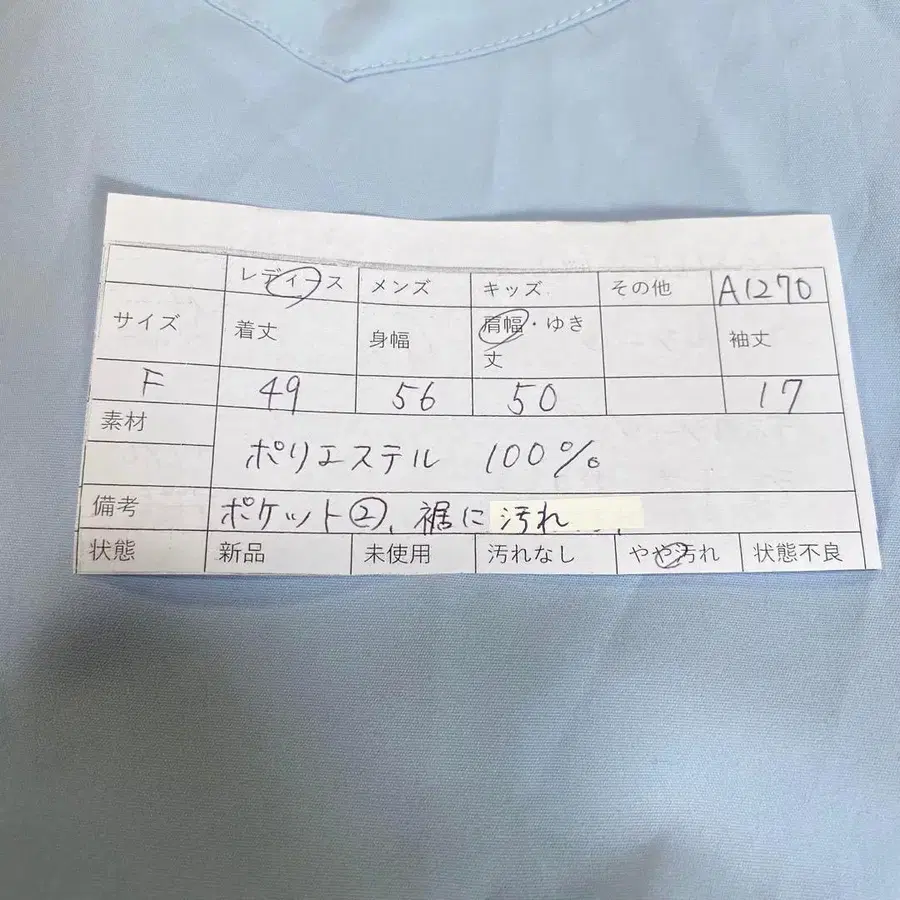 レディース メンズ キッズ その他 A1270
サイズ 着丈 身幅 肩幅・ゆき丈 袖丈
F 49 56 50 17
素材 ポリエステル 100%
備考 ポケット②、裾に汚れ
状態 新品 未使用 汚れなし やや汚れ 状態不良